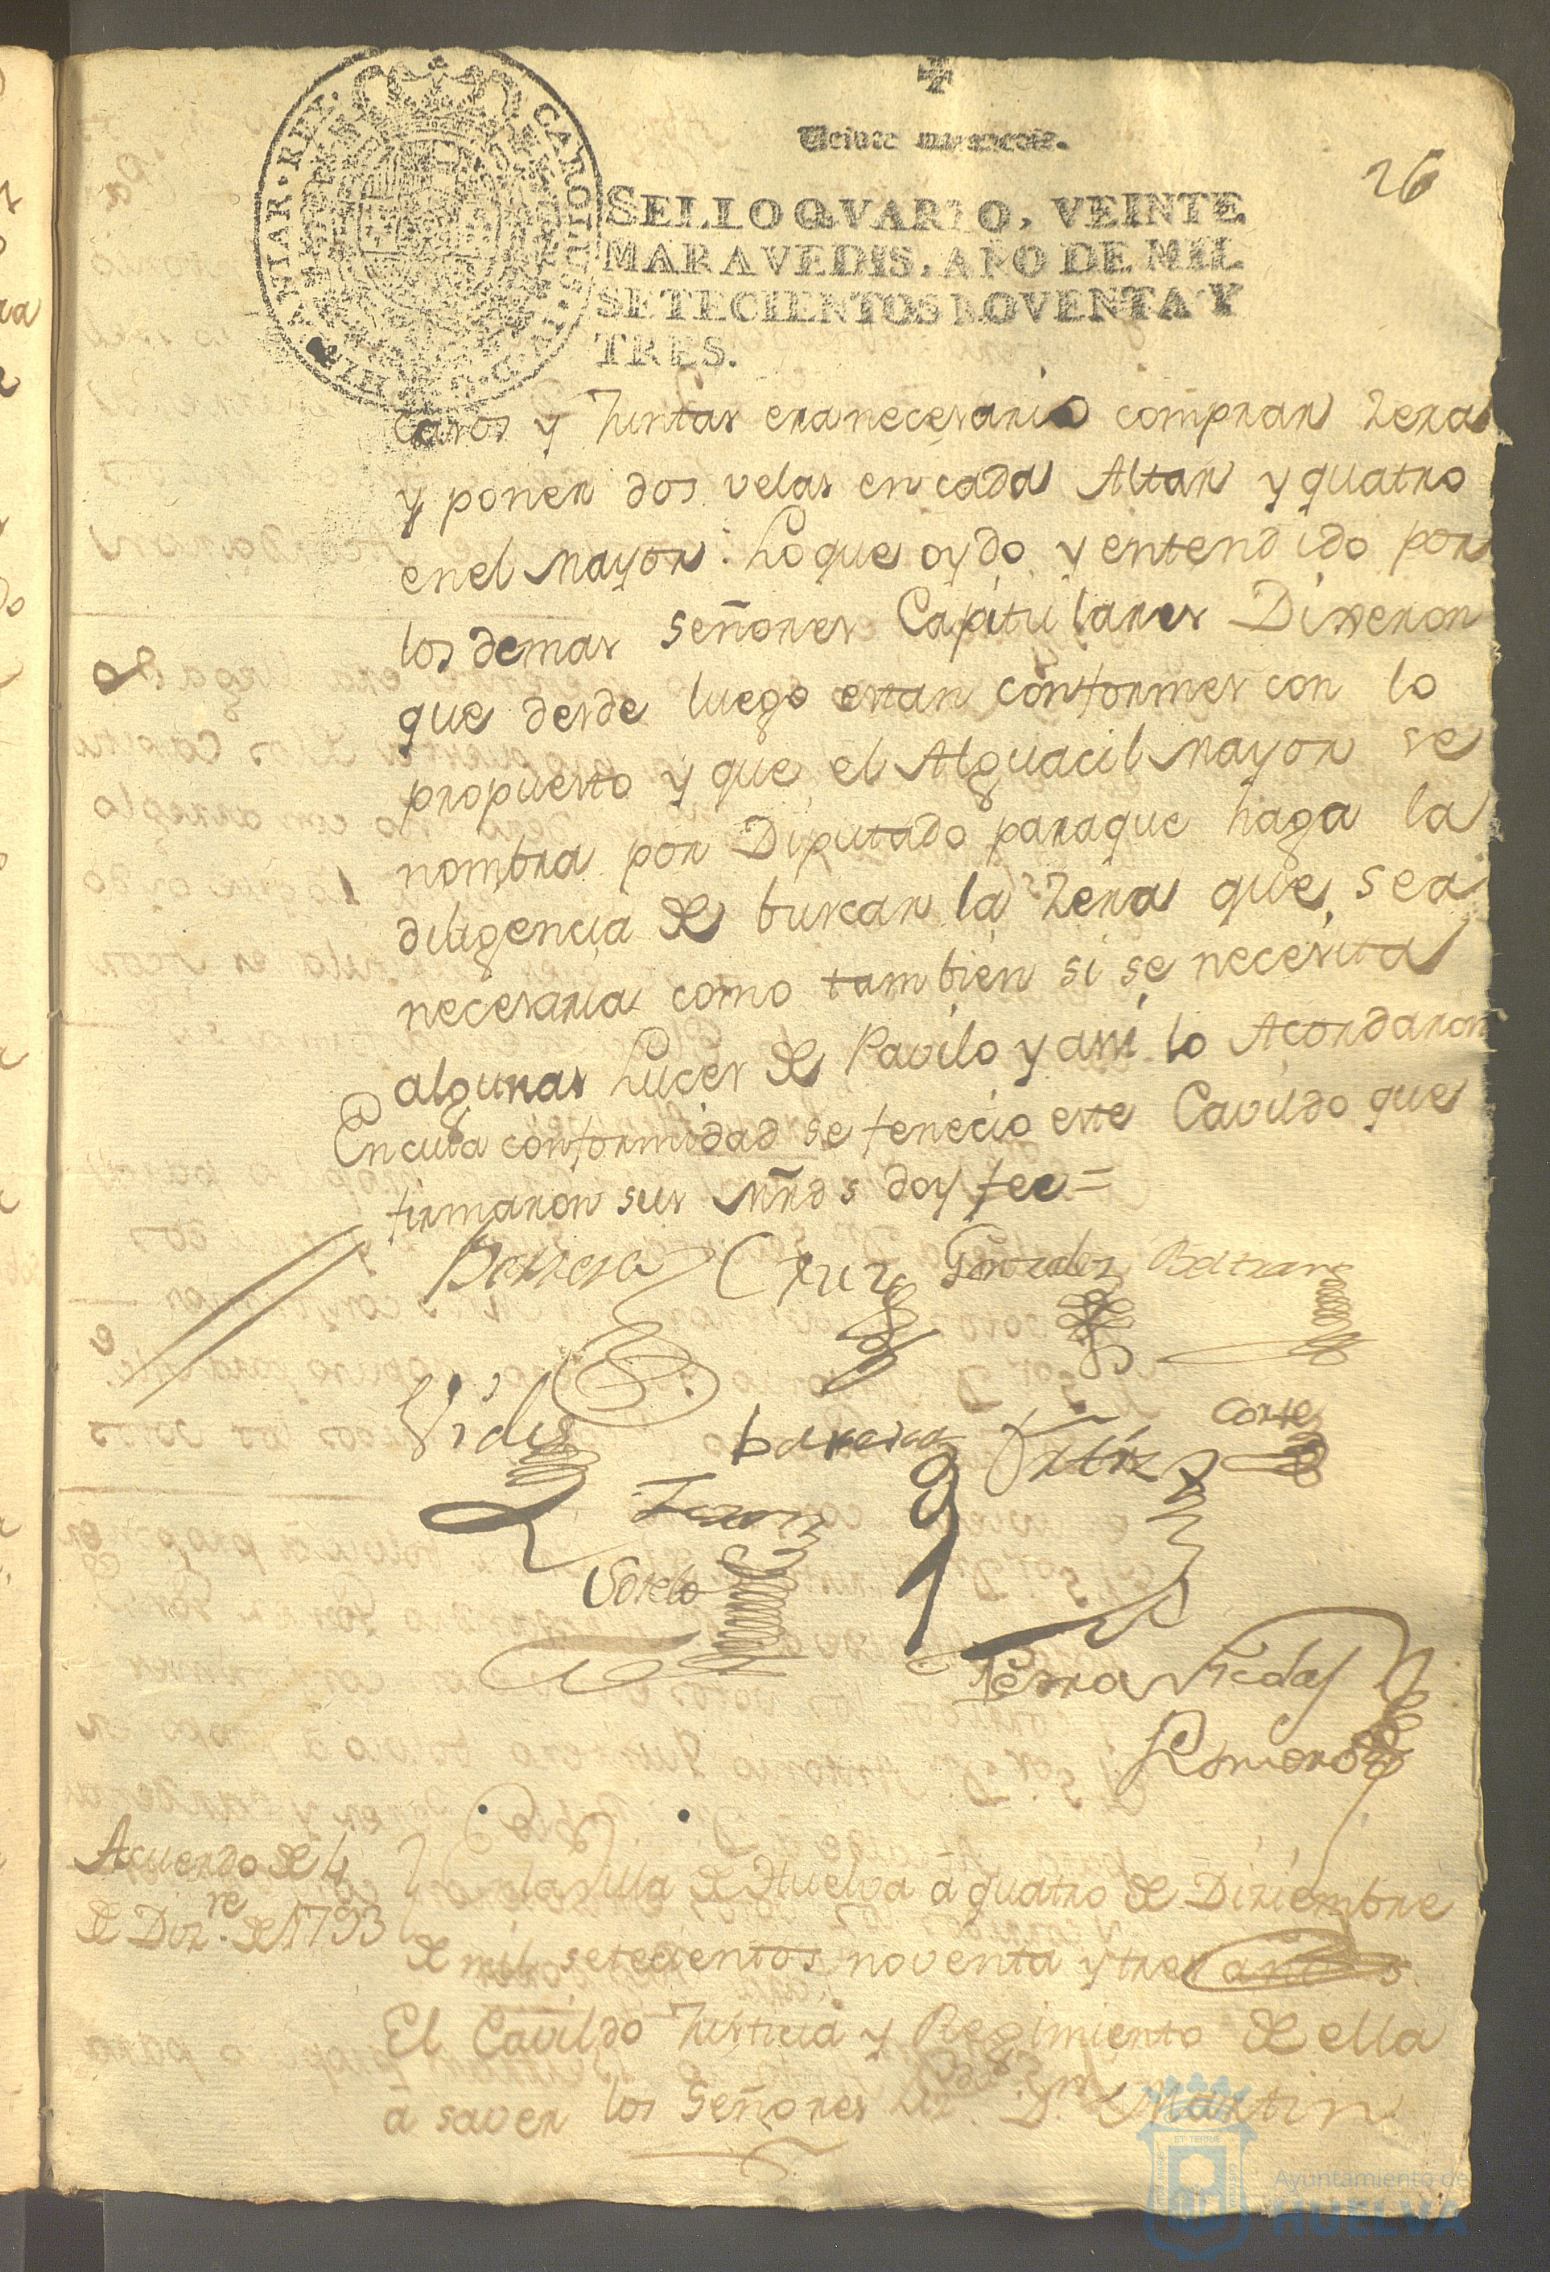 26
Veinte maravedis.
SELLO QVARTO, VEINTE
MARAVEDIS, AÑO DE MIL
SETECIENTOS NOVENTA Y
TRES.
CAROLUS IV D G HISPANIAR REX
casos y Juntas era necesario comprar zera
y poner dos velas en cada Altar y quatro
en el mayor. Lo que oydo y entendido por
los demas Señores Capitulares Dixeron
que desde luego estan conformes con lo
propuesto y que el Alguacil mayor se
nombra por Diputado para que haga la
diligencia de buscar la zera que sea
necesaria como tambien si se necesita
algunas Luces de Pavilo y assi lo Acordaron
En cuia conformidad se fenecio este Cavildo que
firmaron sus mrds doy fee=
Barrera Cruz Gonzalez Beltran
Vides barreira Ortiz Cortes
Sotelo
Romero
Acuerdo de 4
de Diz.re de 1793
En la Villa de Huelva a quatro de Diziembre
de mil setecientos noventa y tres años
El Cavildo Justicia y Regimiento de ella
á saver los Señores Liz. Dn Martin
Ayuntamiento de
HUELVA